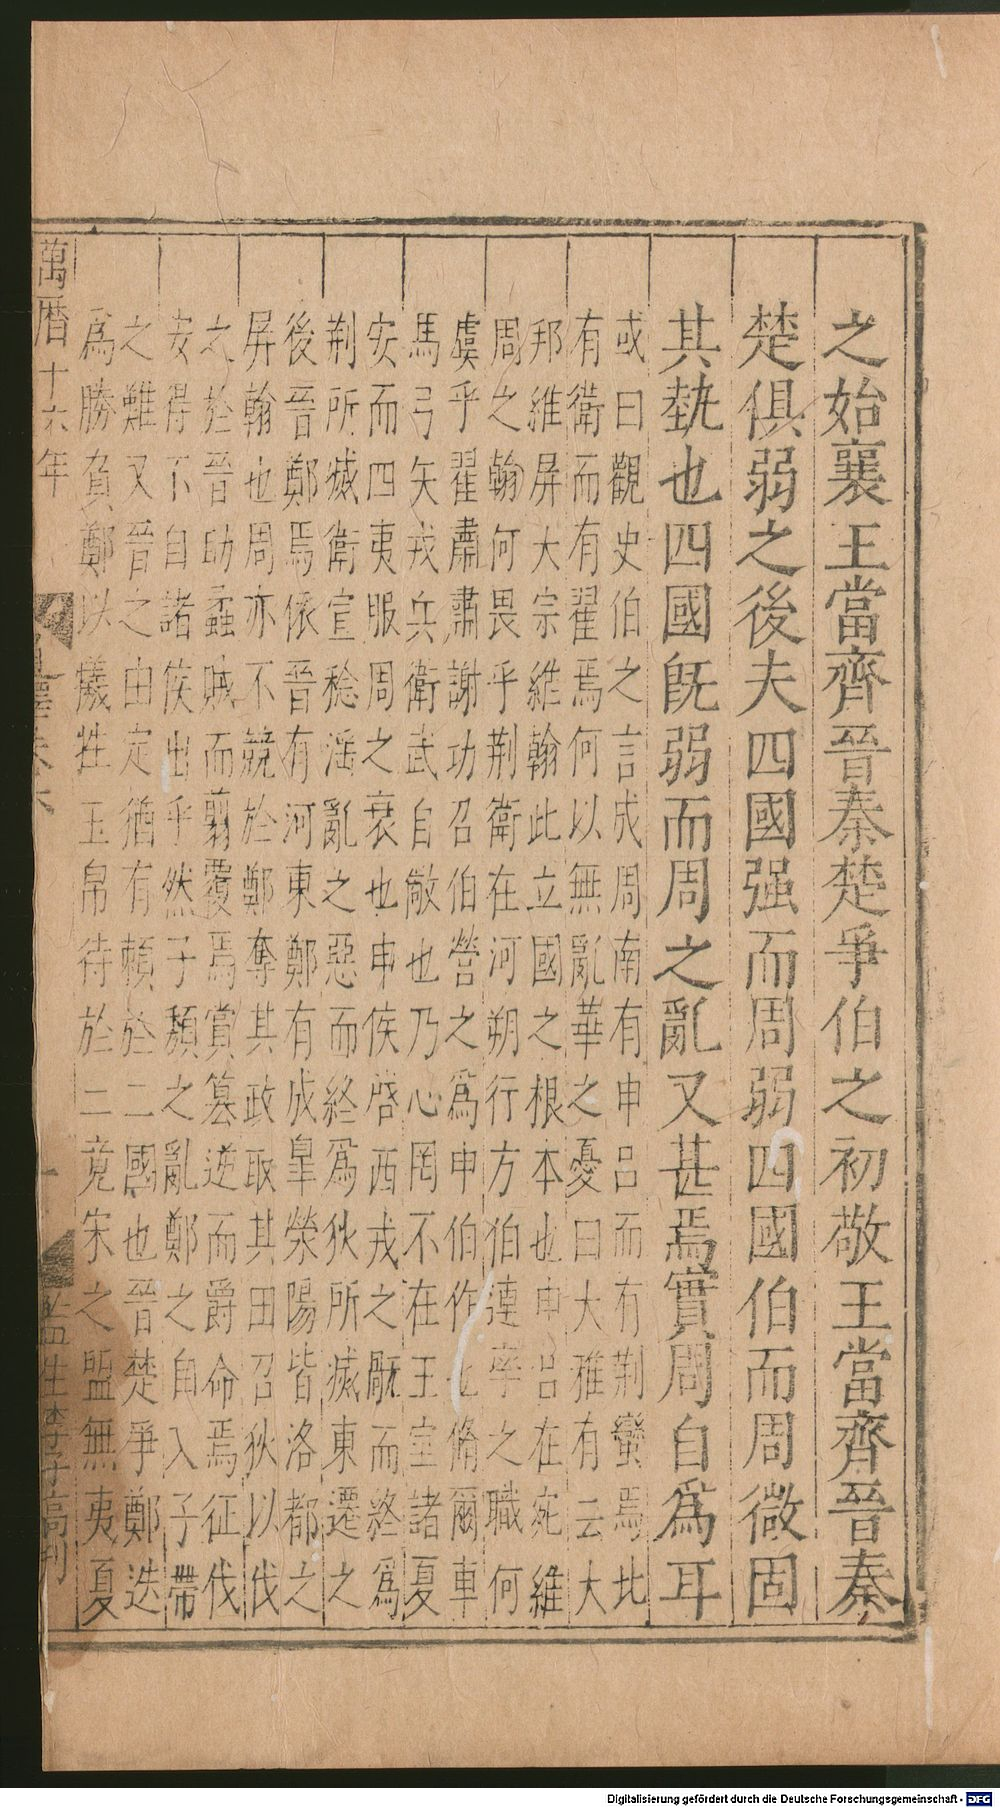 之始襄王當齊晉秦楚爭伯之初敬王當齊晉秦
楚俱弱之後夫四國强而周弱四國伯而周微固
其埶也四國旣弱而周之亂又甚焉實周自爲耳
或曰觀史伯之言成周南有申呂而有荆蠻焉北
有衛而有翟焉何以無亂華之憂曰大雅有云大
邦維屏大宗維翰此立國之根本也申呂在宛維
周之翰何畏乎荆衛在河朔行方伯連率之職何
虞乎翟肅肅謝功召伯營之爲申伯作也脩爾車
馬弓矢戎兵衛武自敵也乃心罔不在王室諸夏
安而四夷服周之衰也申侯啓西戎之厰而終爲
荆所滅衛宣稔滛亂之惡而終爲狄所滅東遷之
後晉鄭焉依晉有河東鄭有成臯滎陽皆洛都之
屏翰也周亦不競於鄭奪其政取其田召狄以伐
之於晉助蟊賊而翦覆焉賞簒逆而爵命焉征伐
安得不自諸侯出乎然子頽之亂鄭之自入子帶
之難又晉之由定猶有賴於二國也晉楚爭鄭迭
爲勝負鄭以犧牲玉帛待於二竟宋之盟無夷夏
萬曆十六年
監生李子高刊
Digitalisierung gefördert durch die Deutsche Forschungsgemeinschaft - DFG